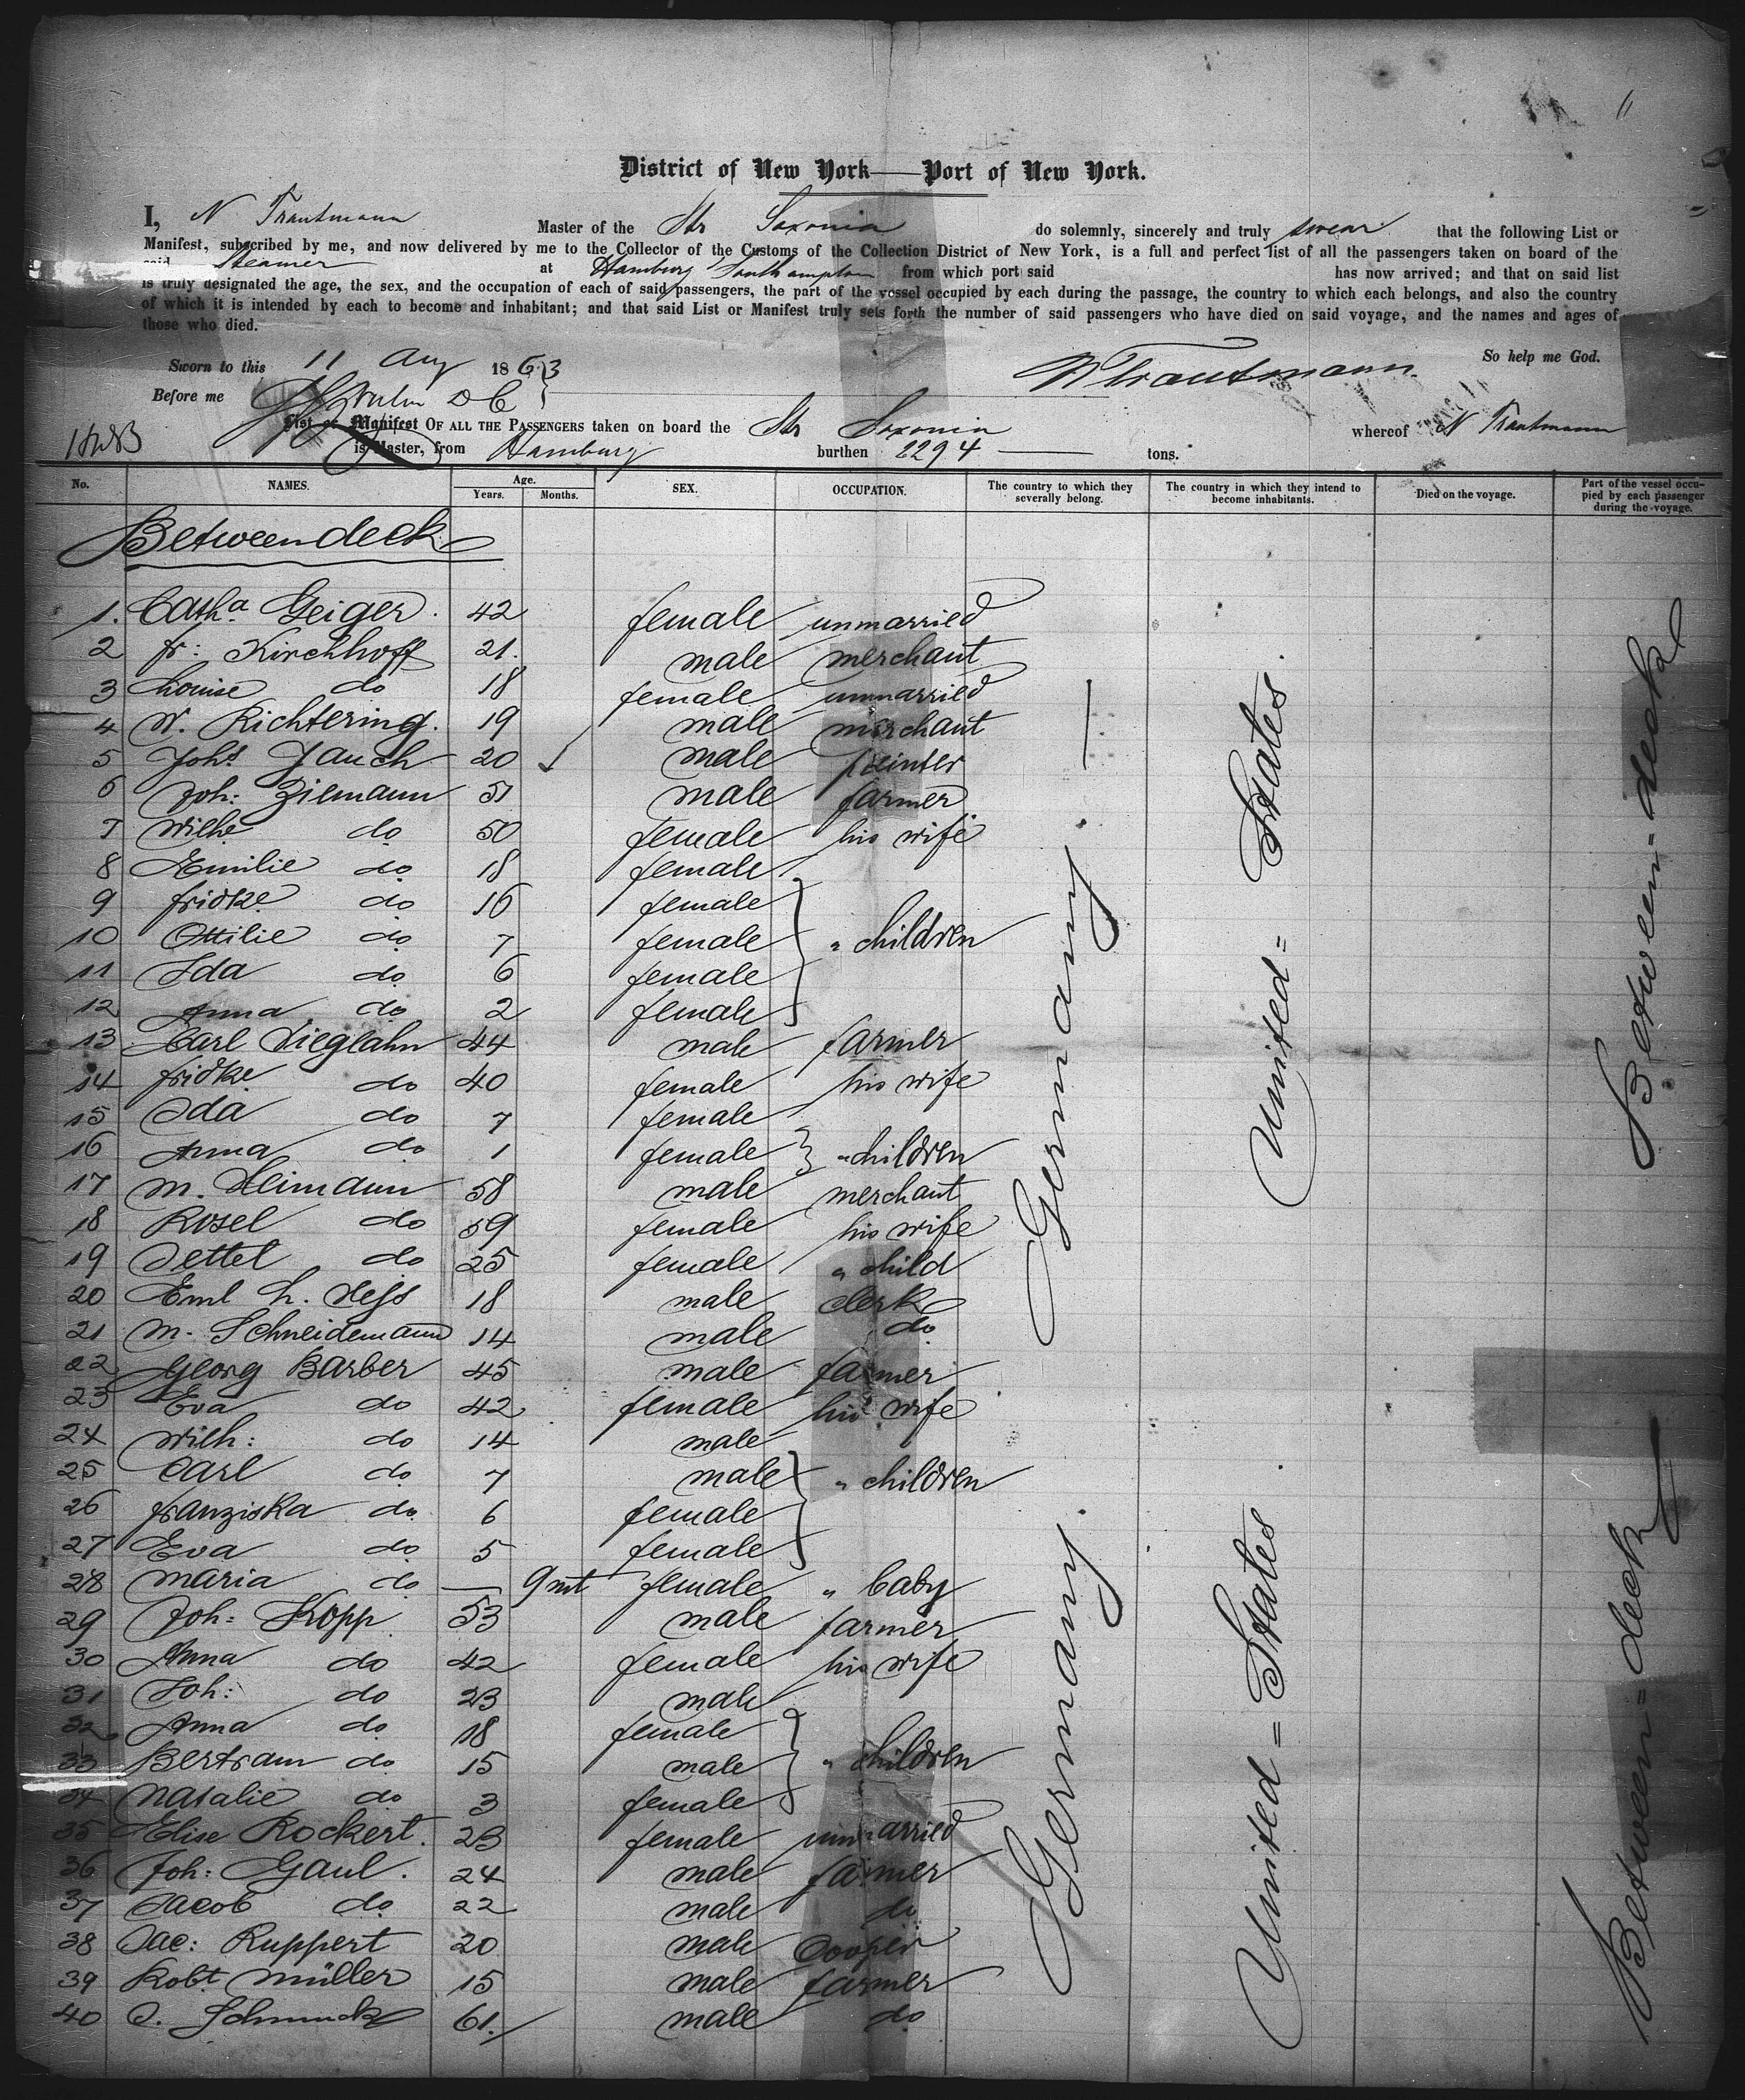 District of New York—Port of New York.
I, N Trautmann Master of the Str Saxonia do solemnly, sincerely and truly swear that the following List or
Manifest, subscribed by me, and now delivered by me to the Collector of the Customs of the Collection District of New York, is a full and perfect list of all the passengers taken on board of the
said Steamer at Hamburg Southampton from which port said has now arrived; and that on said list
is truly designated the age, the sex, and the occupation of each of said passengers, the part of the vessel occupied by each during the passage, the country to which each belongs, and also the country
of which it is intended by each to become and inhabitant; and that said List or Manifest truly sets forth the number of said passengers who have died on said voyage, and the names and ages of
those who died.
So help me God.
Sworn to this 11 Aug 1863
N Trautmann
Before me D C
List or Manifest OF ALL THE PASSENGERS taken on board the Str Saxonia whereof N Trautmann
is Master, from Hamburg burthen 2294 tons.
No. NAMES. Age. Years. Months. SEX. OCCUPATION. The country to which they severally belong. The country in which they intend to become inhabitants. Died on the voyage. Part of the vessel occupied by each passenger during the voyage.
Betweendeck
1. Catha Geiger. 42 female unmarried
2 fr: Kirchhoff 21. male merchant
3 Louise do 18 female unmarried
4 W. Richtering. 19 male merchant
5 Johs Jauch 20 male painter
6 Joh: Ziemann 51 male farmer
7 Wilhe do 50 female his wife
8 Emilie do 18 female
9 fridke do 16 female
10 Ottilie do 7 female " children
11 Ida do 6 female
12 Anna do 2 female
13 Carl Lieglahn 44 male farmer
14 fridke do 40 female his wife
15 Ida do 7 female
16 Anna do 1 female " children
17 M. Heimann 58 male merchant
18 Rosel do 59 female his wife
19 Jettel do 25 female " child
20 Eml L. Hess 18 male clerk
21 M. Schneidemann 14 male do
22 Georg Barber 45 male farmer
23 Eva do 42 female his wife
24 Wilh: do 14 male
25 Carl do 7 male " children
26 franziska do 6 female
27 Eva do 5 female
28 Maria do — 9 mt female " baby
29 Joh: Kopp 53 male farmer
30 Anna do 42 female his wife
31 Joh: do 23 male
32 Anna do 18 female
33 Bertram do 15 male " children
34 Natalie do 3 female
35 Elise Rockert. 23 female unmarried
36 Joh: Gaul. 24 male farmer
37 Jacob do 22 male do
38 Jac: Ruppert 20 male Cooper
39 Robt Müller 15 male farmer
40 J. Schmuck 61. male do
Germany. —
United = States.
Between = deck
Germany.
United = States
Between = deck